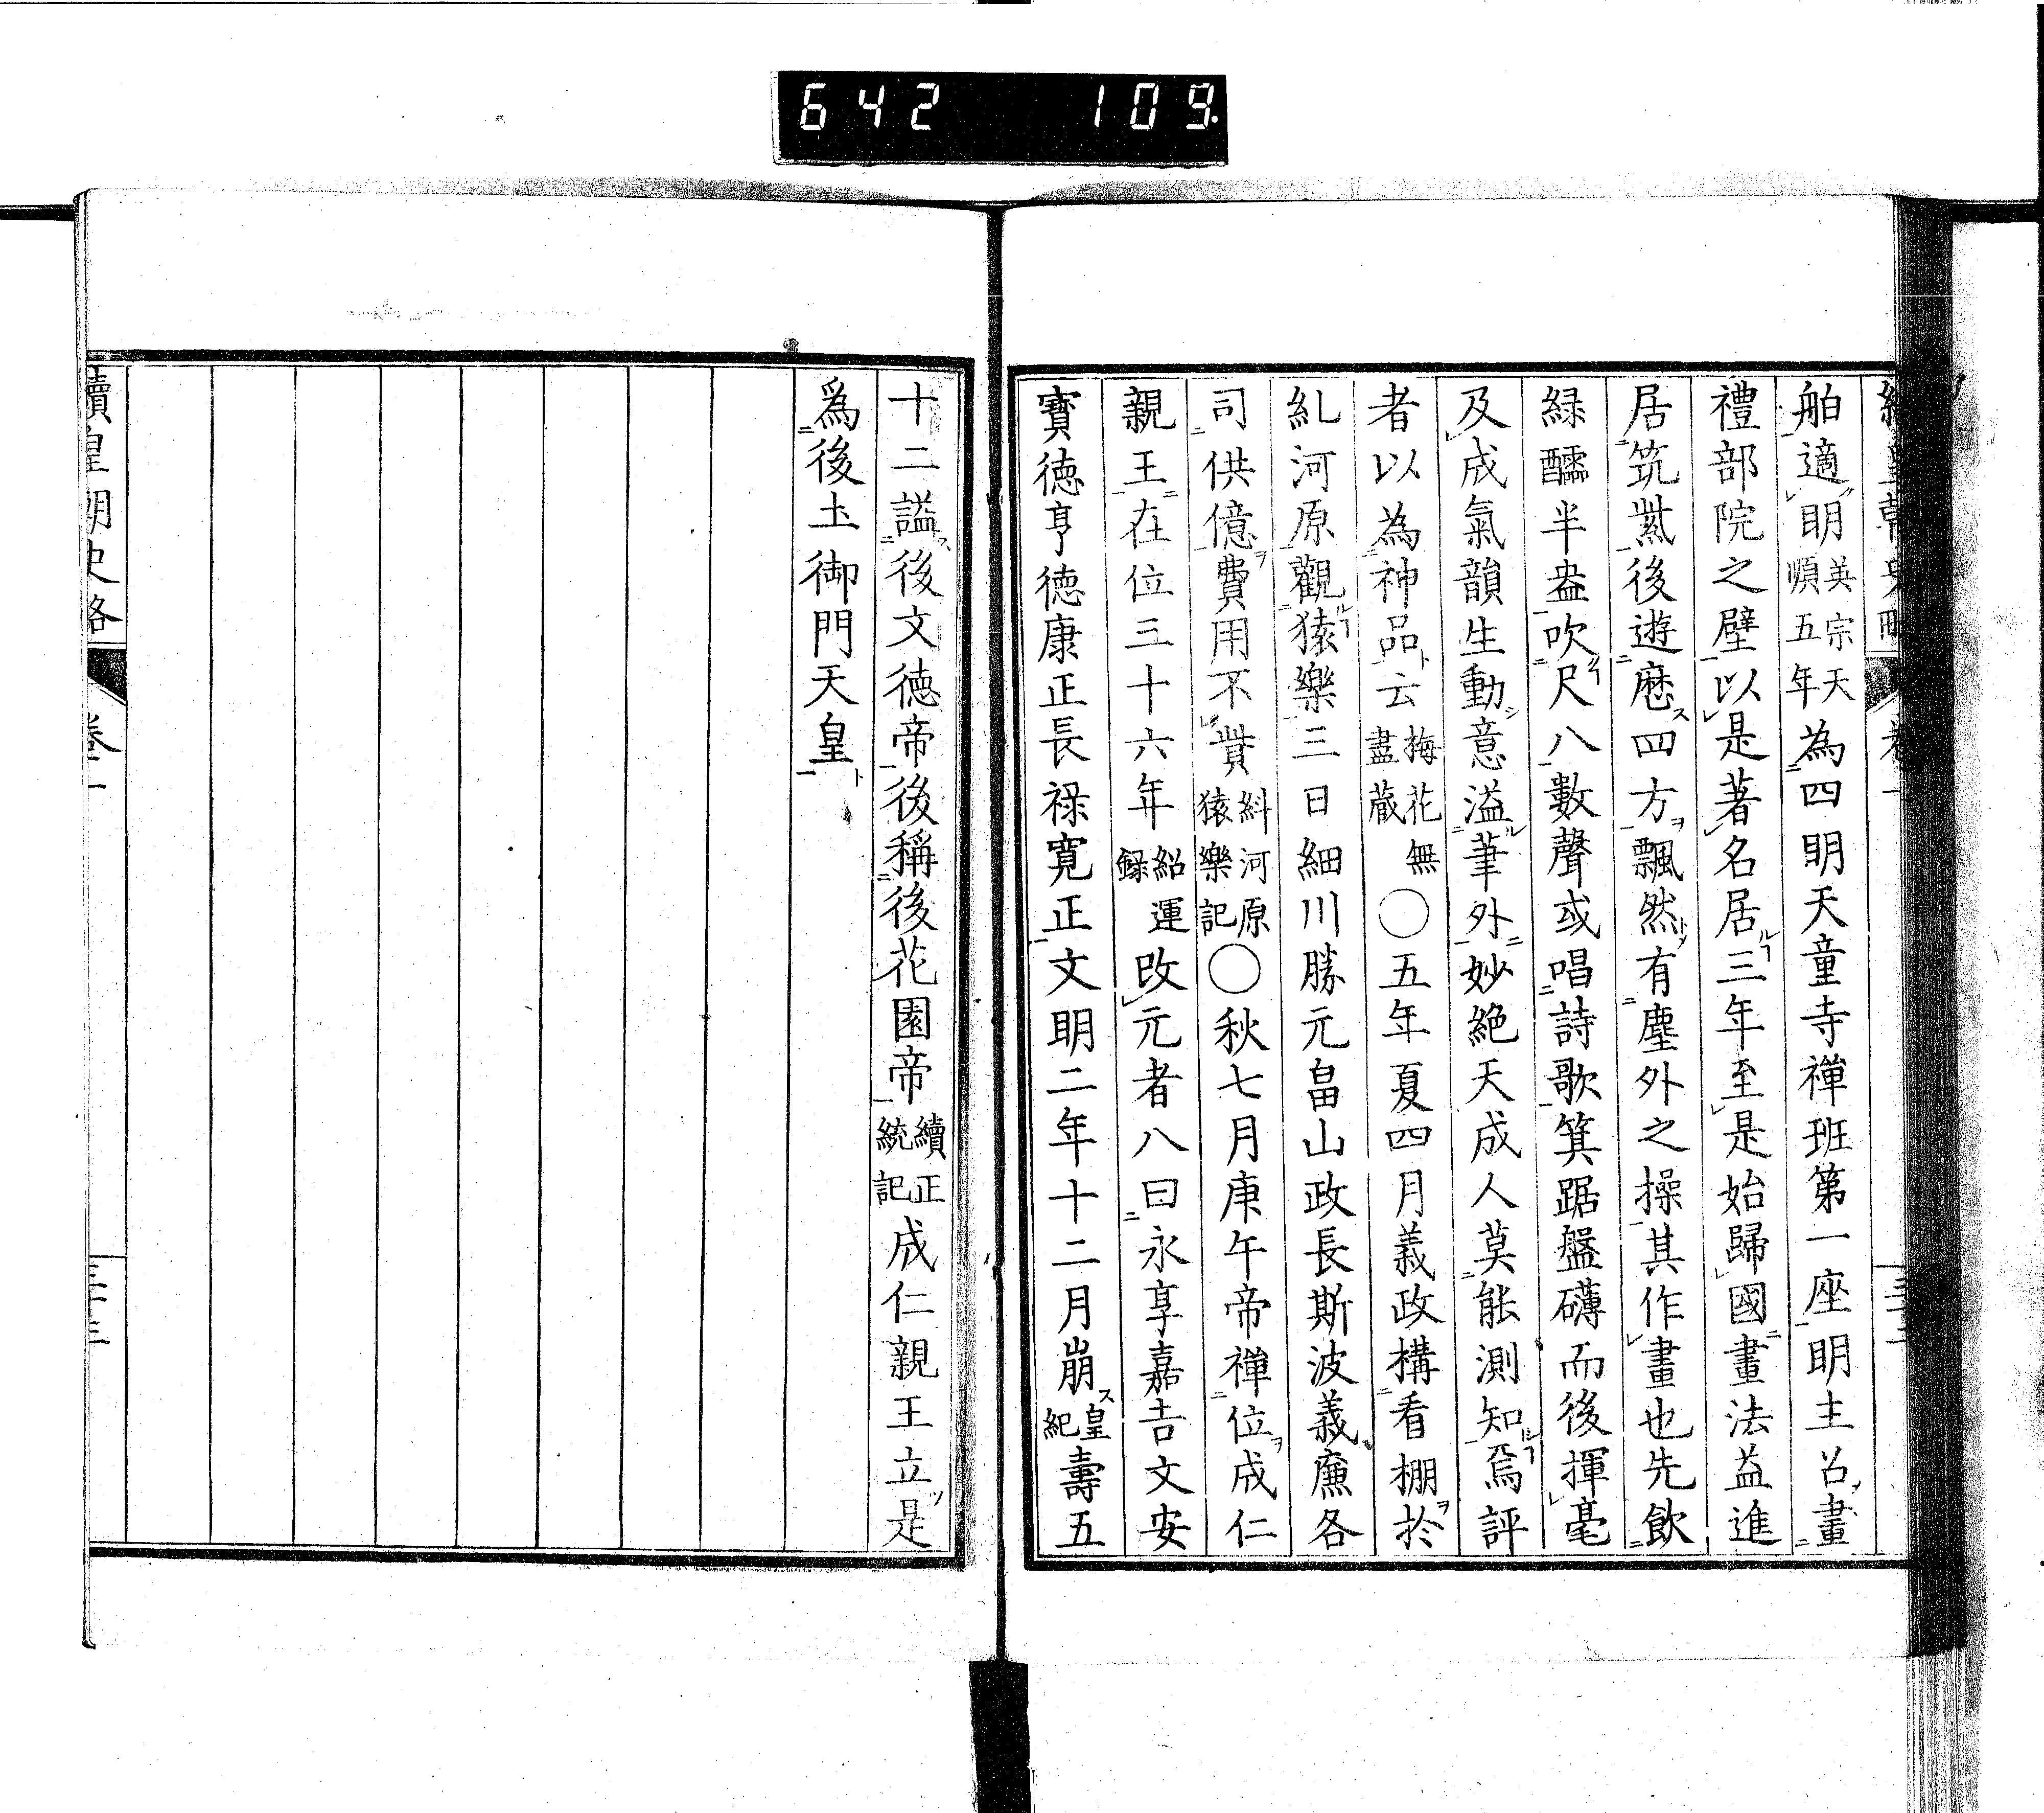 642 109
舶適明英宗天順五年為四明天童寺禪班第一座明主召畫
禮部院之壁以是著名居三年至是始歸國畫法益進
居筑紫後遊歷四方飄然有塵外之操其作畫也先飲
緑醽半盎吹尺八數聲或唱詩歌箕踞盤礴而後揮毫
及成氣韻生動意溢筆外妙絶天成人莫能測知焉評
者以為神品云梅花無盡藏〇五年夏四月義政構看棚於
糺河原觀猿樂三日細川勝元畠山政長斯波義廉各
司供億費用不貲糾河原猿樂記〇秋七月庚午帝禪位成仁
親王在位三十六年紹運録改元者八曰永享嘉吉文安
寳徳亨徳康正長禄寛正文明二年十二月崩皇紀壽五
十二謚後文徳帝後稱後花園帝續正統記成仁親王立是
爲後土御門天皇
續皇朝史略 卷一 三十三